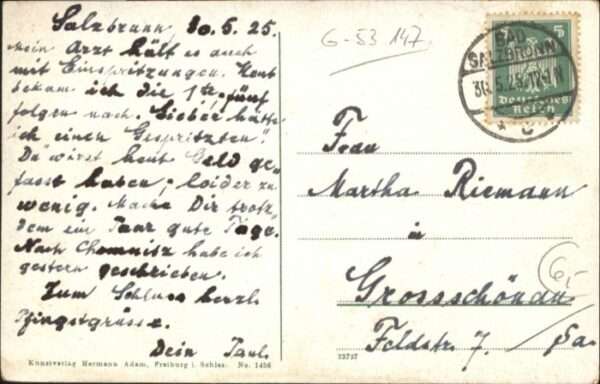 Salzbrunn, 30.5.25.
Mein Arzt hält es auch
mit Einspritzungen. Heut
bekam ich die 1te, fünf
folgen nach. Lieber hätte
ich einen "Gespritzten".
Du wirst heut Geld ge-
fasst haben; leider zu
wenig. Mache Dir trotz-
dem ein Paar gute Tage.
Nach Chemnitz habe ich
gestern geschrieben.
Zum Schluss herzl.
Pfingstgrüsse.
Dein Paul.
Kunstverlag Hermann Adam, Freiburg i. Schles. No. 1456
G-53 147
BAD
SALZBRUNN
30.5.25
5
Deutsches
Reich
Frau
Martha Riemann
in
Grossschönau
6,-
Feldstr. 7. / Sa.
23757